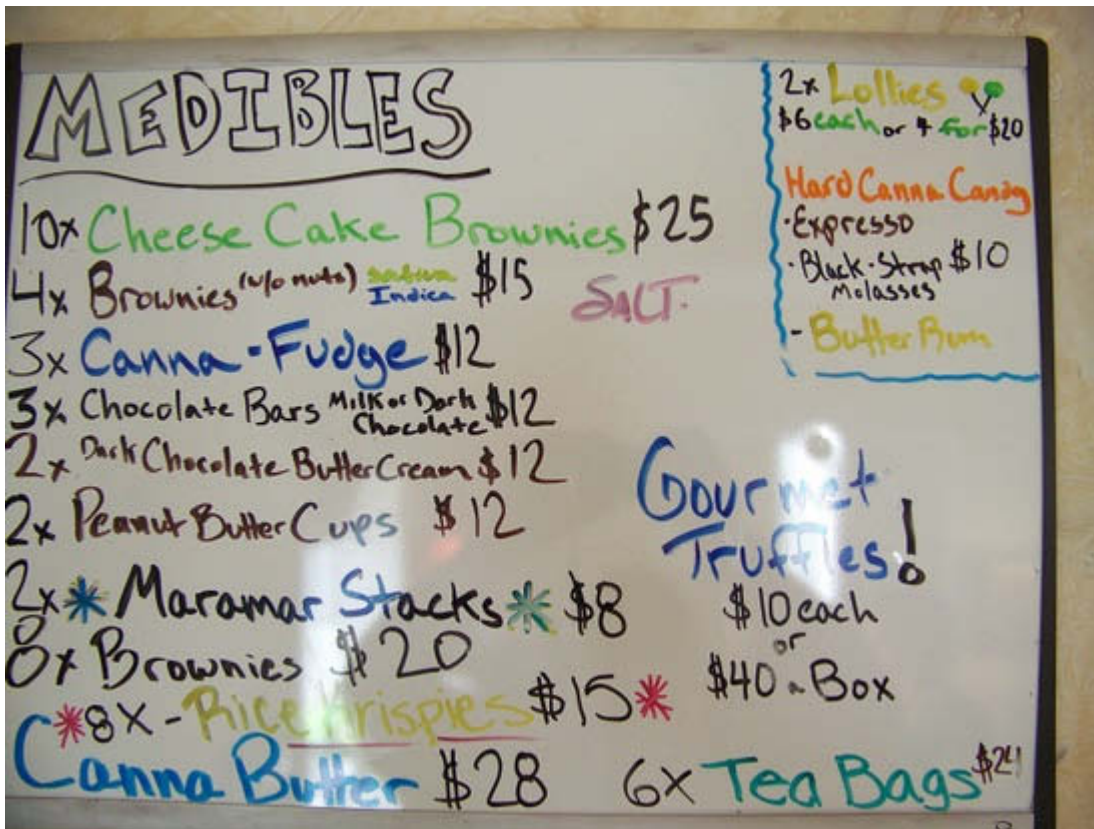 MEDIBLES
10x Cheese Cake Brownies $25
4x Brownies (w/o nuts) sativa Indica $15
SALT.
3x Canna - Fudge $12
3x Chocolate Bars Milk or Dark Chocolate $12
2x Dark Chocolate Butter Cream $12
2x Peanut Butter Cups $12
2x Maramar Stacks $8
8x Brownies $20
8x - Rice Krispies $15
Canna Butter $28
2x Lollies
$6 each or 4 for $20
Hard Canna Candy
· Expresso
· Black-Strap $10
Molasses
- Butter Rum
Gourmet
Truffles!
$10 each
or
$40 a Box
6x Tea Bags $24